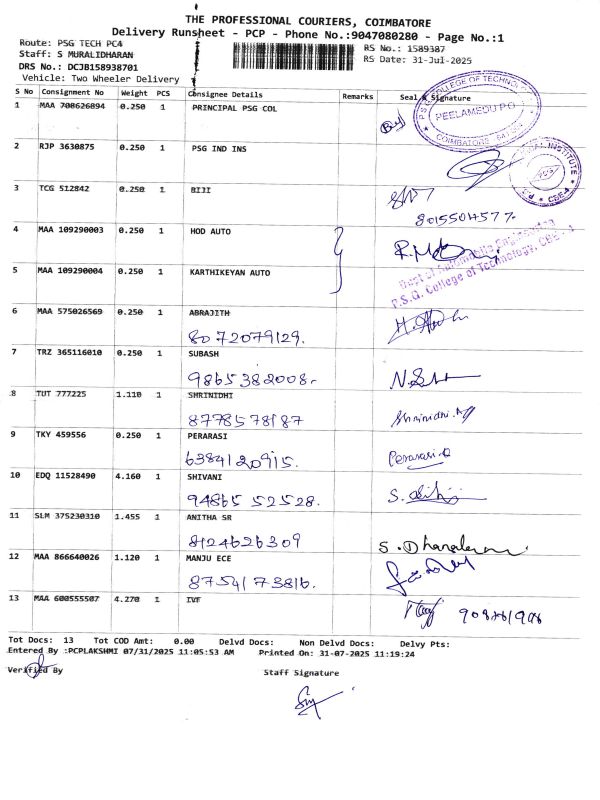 THE PROFESSIONAL COURIERS, COIMBATORE
Delivery Runsheet - PCP - Phone No.:9047080280 - Page No.:1
Route: PSG TECH PC4
RS No.: 1589387
Staff: S MURALIDHARAN
RS Date: 31-Jul-2025
DRS No.: DCJB158938701
Vehicle: Two Wheeler Delivery
S No Consignment No Weight PCS Consignee Details Remarks Seal & Signature
1 MAA 700626894 0.250 1 PRINCIPAL PSG COL
PEELAMEDU P.O
2 RJP 3630875 0.250 1 PSG IND INS
3 TCG 512842 0.250 1 BIJI
8015504577.
4 MAA 109290003 0.250 1 HOD AUTO
5 MAA 109290004 0.250 1 KARTHIKEYAN AUTO
Dept of Automobile Engineering
P.S.G. College of Technology, CBE - 4
6 MAA 575026569 0.250 1 ABRAJITH
8072079129.
7 TRZ 365116010 0.250 1 SUBASH
9865382008.
8 TUT 777225 1.110 1 SHRINIDHI
8778578187
9 TKY 459556 0.250 1 PERARASI
6384120915.
Perarasi.
10 EDQ 11528490 4.160 1 SHIVANI
94865 52528.
11 SLM 375230310 1.455 1 ANITHA SR
8124626309
12 MAA 866640026 1.120 1 MANJU ECE
87541 73816.
13 MAA 600555507 4.270 1 IVF
Tot Docs: 13 Tot COD Amt: 0.00 Delvd Docs: Non Delvd Docs: Delvy Pts:
Entered By :PCPLAKSHMI 07/31/2025 11:05:53 AM Printed On: 31-07-2025 11:19:24
Verified By
Staff Signature